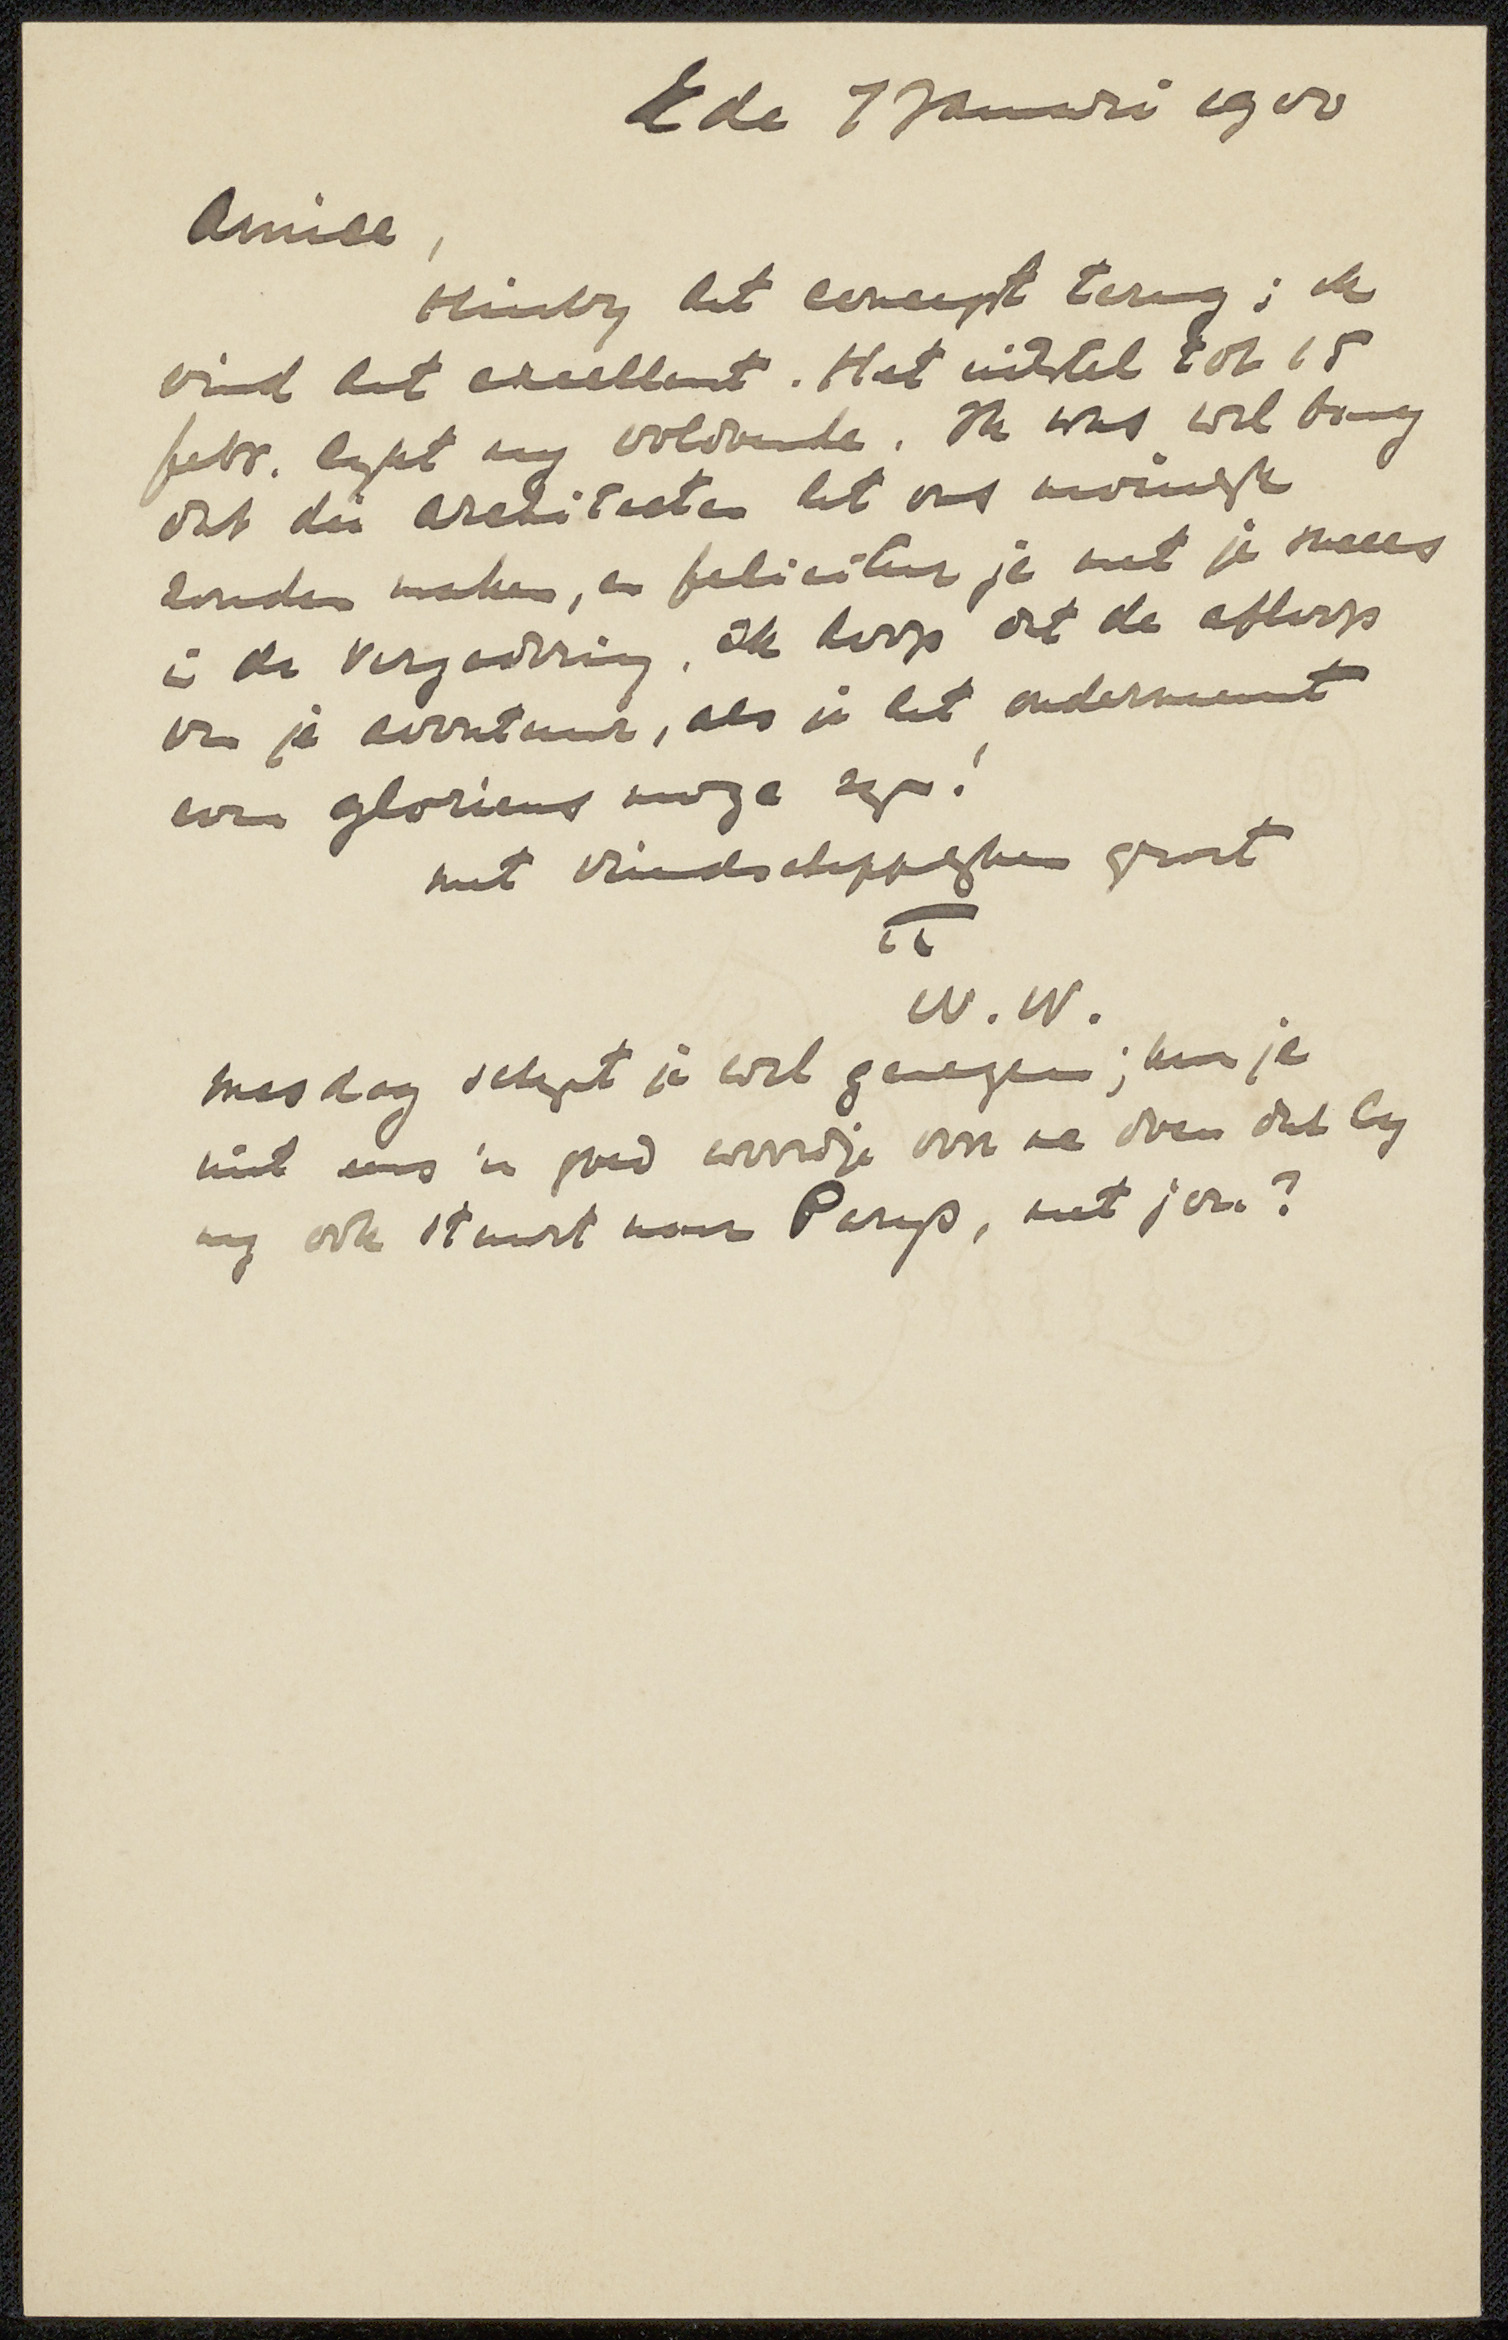 Ede 7 Januari 1900
Amice,
Hierby het concept terug; ik
vind het excellent. Het uitstel tot 15
febr. lykt my voldoende. Ik was wel bang
dat die architecten het ons moeielyk
zouden maken, en feliciteer je met je succes
in de vergadering. Ik hoop dat de afloop
van je avontuur, als je het onderneemt
even glorieus moge zyn!
met vriendschappelyken groet
tt
W.W.
Mesdag schynt je wel genegen; kun je
niet eens 'n goed woordje voor me doen dat hy
my ook stuurt naar Parys, met jou?